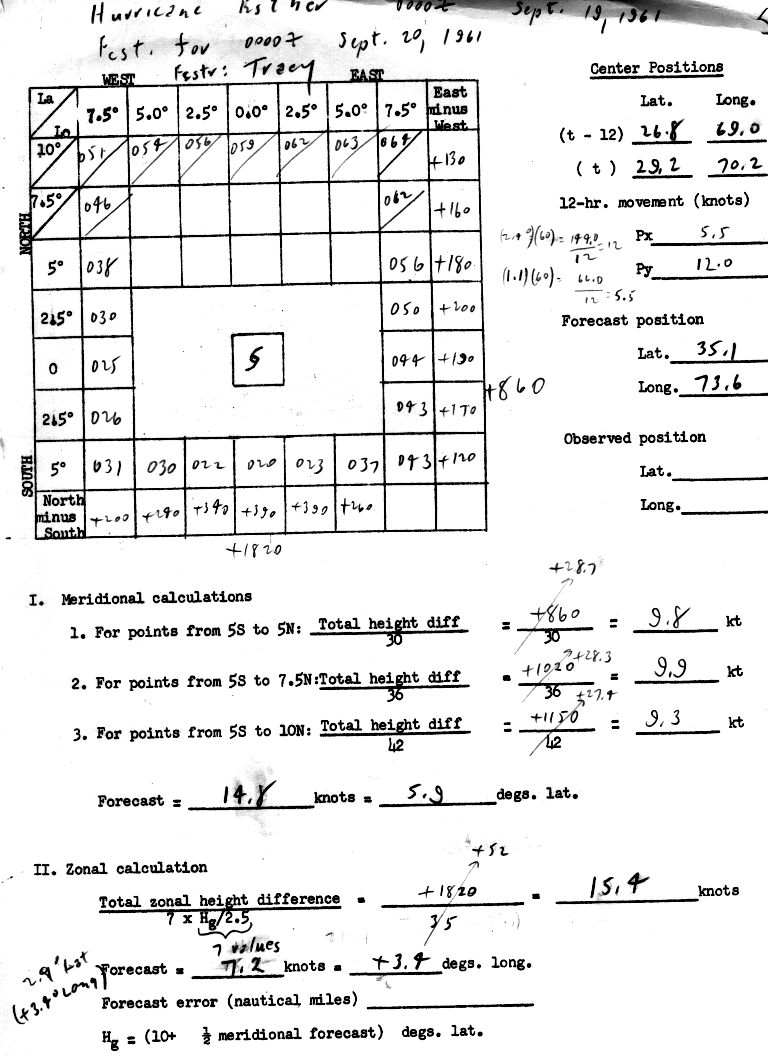 Hurricane Esther 0000Z Sept. 19, 1961
Fcst. for 0000Z Sept. 20, 1961
Fcstr: Tracy
WEST EAST
La Lo 7.5° 5.0° 2.5° 0.0° 2.5° 5.0° 7.5° East minus West
10° 051 054 056 059 062 063 064 +130
7.5° 046 062 +160
NORTH
5° 038 056 +180
2.5° 030 050 +200
0 025 044 +190
+860
2.5° 026 043 +170
SOUTH
5° 031 030 022 020 023 037 043 +120
North minus South +200 +240 +340 +390 +390 +260
+1820
Center Positions
Lat. Long.
(t - 12) 26.8 69.0
( t ) 29.2 70.2
12-hr. movement (knots)
(2.4°)(60) = 144.0/12 = 12
Px 5.5
(1.1)(60) = 66.0/12 = 5.5
Py 12.0
Forecast position
Lat. 35.1
Long. 73.6
Observed position
Lat.
Long.
I. Meridional calculations
+28.7
1. For points from 5S to 5N: Total height diff/30 = +860/30 = 9.8 kt
+28.3
2. For points from 5S to 7.5N: Total height diff/36 = +1020/36 = 9.9 kt
+27.4
3. For points from 5S to 10N: Total height diff/42 = +1150/42 = 9.3 kt
Forecast = 14.8 knots = 5.9 degs. lat.
II. Zonal calculation
+52
Total zonal height difference/7 x Hg/2.5 = +1820/35 = 15.4 knots
7 values
2.9° Lat
(+3.4° Long)
Forecast = 7.2 knots = +3.4 degs. long.
Forecast error (nautical miles)
Hg = (10+ ½ meridional forecast) degs. lat.